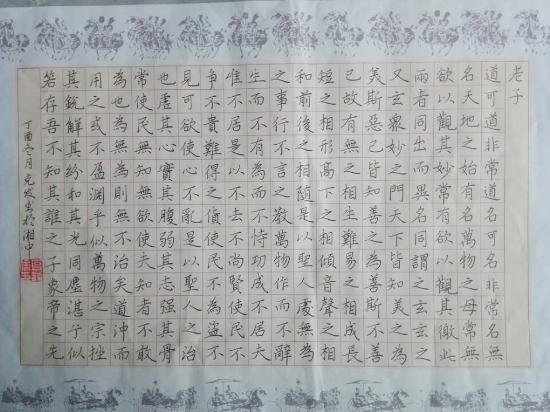 老子
道可道非常道名可名非常名無
名天地之始有名萬物之母常無
欲以觀其妙常有欲以觀其徼此
兩者同出而異名同謂之玄玄之
又玄衆妙之門天下皆知美之為
美斯惡已皆知善之為善斯不善
已故有無之相生難易之相成長
短之相形高下之相傾音聲之相
和前後之相隨是以聖人處無為
之事行不言之教萬物作而不辭
生而不有為而不恃功成不居夫
唯不居是以不去不尚賢使民不
爭不貴難得之貨使民不為盜不
見可欲使心不亂是以聖人之治
也虛其心實其腹弱其志强其骨
常使民無知無欲使夫知者不敢
為也為無為則無不治矣道沖而
用之或不盈淵乎似萬物之宗挫
其銳解其紛和其光同塵湛乎似
若存吾不知其誰之子象帝之先
丁酉冬月克书於湘中